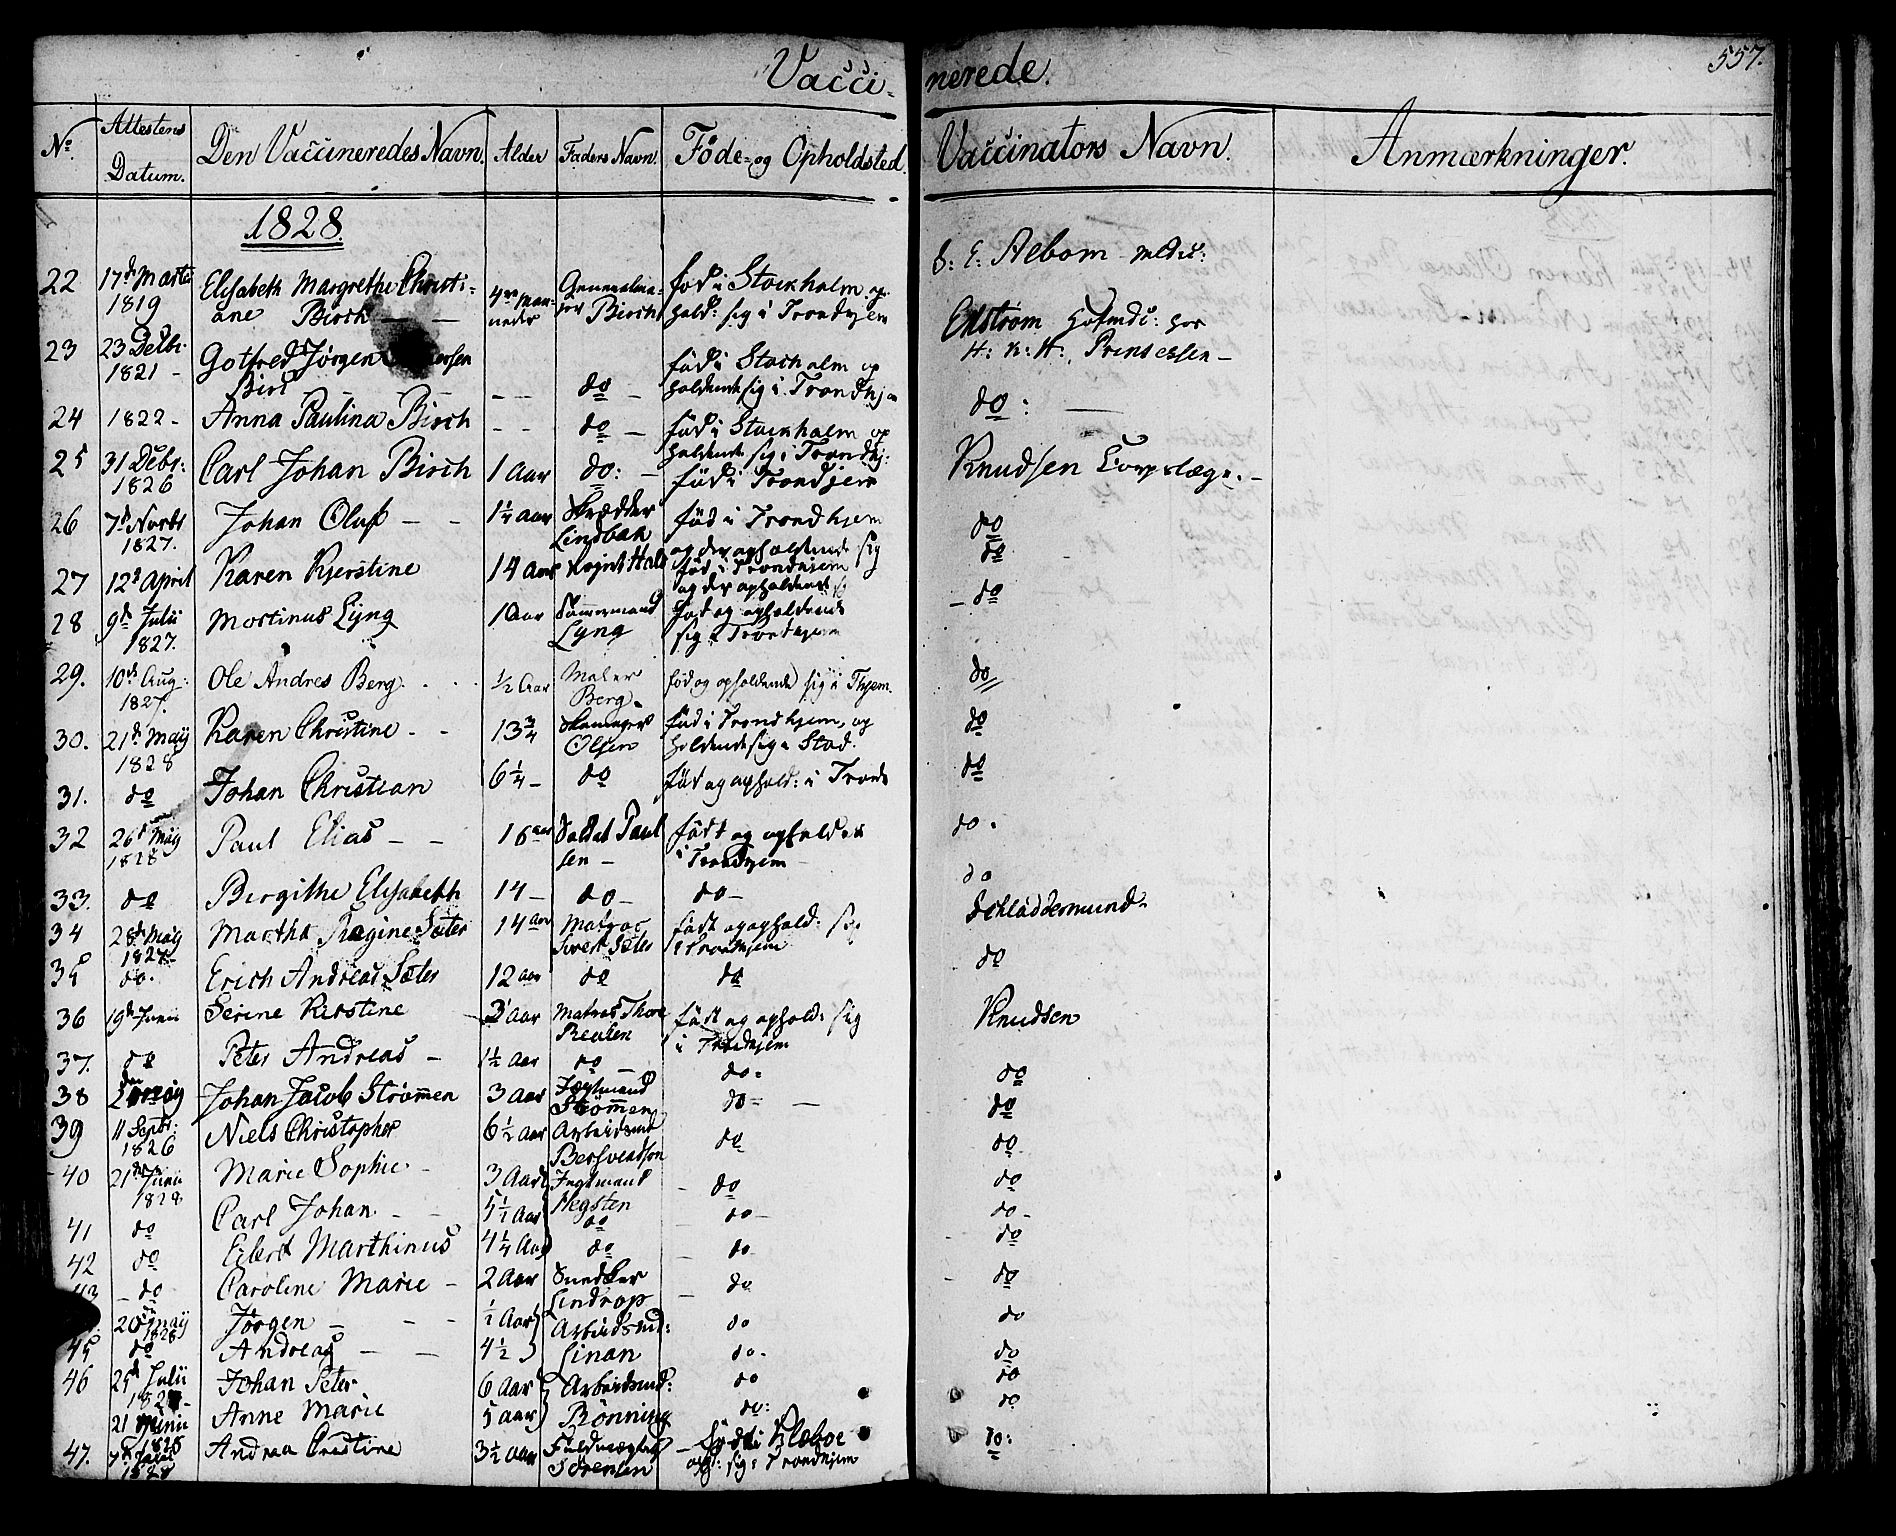 Vacci- nerede. 557.
No. Attestens Datum. Den Vaccineredes Navn. Alder Faders Navn. Føde- og Opholdsted. Vaccinators Navn. Anmærkninger.
1828.
22 17de Martii 1819 Elisabeth Margrethe Christiane Birch Generalmajor Birch fød i Stockholm og hold: sig i Trondhjem Aebom
23 23 Decbr 1821 - Gotfred Jørgen Birch do - fød i Stockholm op holdende sig i Trondhj Ekstrøm H: K: H: Prinsessen -
24 1822 - Anna Paulina Birch - - do - fød i Stockholm op holdende sig i Trondhj: do: -
25 31 Decbr: 1826 Carl Johan Birch 1 Aar do: - fød i Trondhjem Knudsen Corpslæge. -
26 7de Novbr 1827. Johan Oluf - - 1 1/4 Aar Skrædder Lindbak fød i Trondhjem og der opholdende sig do
27 12te April Karen Kjerstine 14 Aar fød i Trondhjem og der opholdende do
28 9de Julii 1827. Mortinus Lyng 1 Aar Tømmermand Lyng fød og opholdende sig i Trondhjem - do
29. 10de Aug: 1827. Ole Andres Berg. 1/2 Aar Maler Berg. fød og opholdende sig i Thjem. do
30. 21de May 1828 Karen Christine - - 13 3/4 Olsen fød i Trondhjem, og holdende sig i Stad. do
31. do Johan Christian 6 1/4 - do fød og ophold: i Trond do
32 26de May 1828 Paul Elias - - 16 aar Soldat Paulsen - født og ophold i Trondhjem - do.
33. do Birgithe Elisabeth 14 - do - do - do
34 28de May 1827 Martha Regine Sæter 14 aar Matros Sivert Sæter født og ophold: sig i Trondhjem Schladdermund
35 do. Erich Andreas Sæter 12 aar do do do
36 19de Junii Serine Kirstine aar Matros født og ophold: sig i Trondhjem Knudsen
37. do Peter Andreas - 1 1/2 Aar do - do - do
38 Johan Jacob Strømmen 3 Aar Jægtmand Strømmen do - do
39 11 Septbr: 1826 Niels Christopher 6 1/2 Aar Arbeidsmd do do
40 21de Junii 1828 Marie Sophie - 3 Aar Jægtmand Hegsten - do do
41 do Carl Johan - - 5 1/2 Aar do do - do -
42 do Edert Marthinus 4 1/4 Aar do do - do
43 - do Caroline Marie - 2 Aar Snedker Lindrop do do
20de May 1828 Jørgen - - - 1/2 Aar Arbeidsmd: Linan do do
45 do Andreas - - 4 1/2 do - do
46 25de Julii Johan Peter 6 Aar Arbeidsmd: Rønning do do
21 Junii 1828 Anne Marie 5 aar do: do
47. 7de Julii 1828 Andrea Cristine 3 1/2 Aar Fuldmægtig Sørensen - Født i Klæboe oph: sig i Trondhjem do: